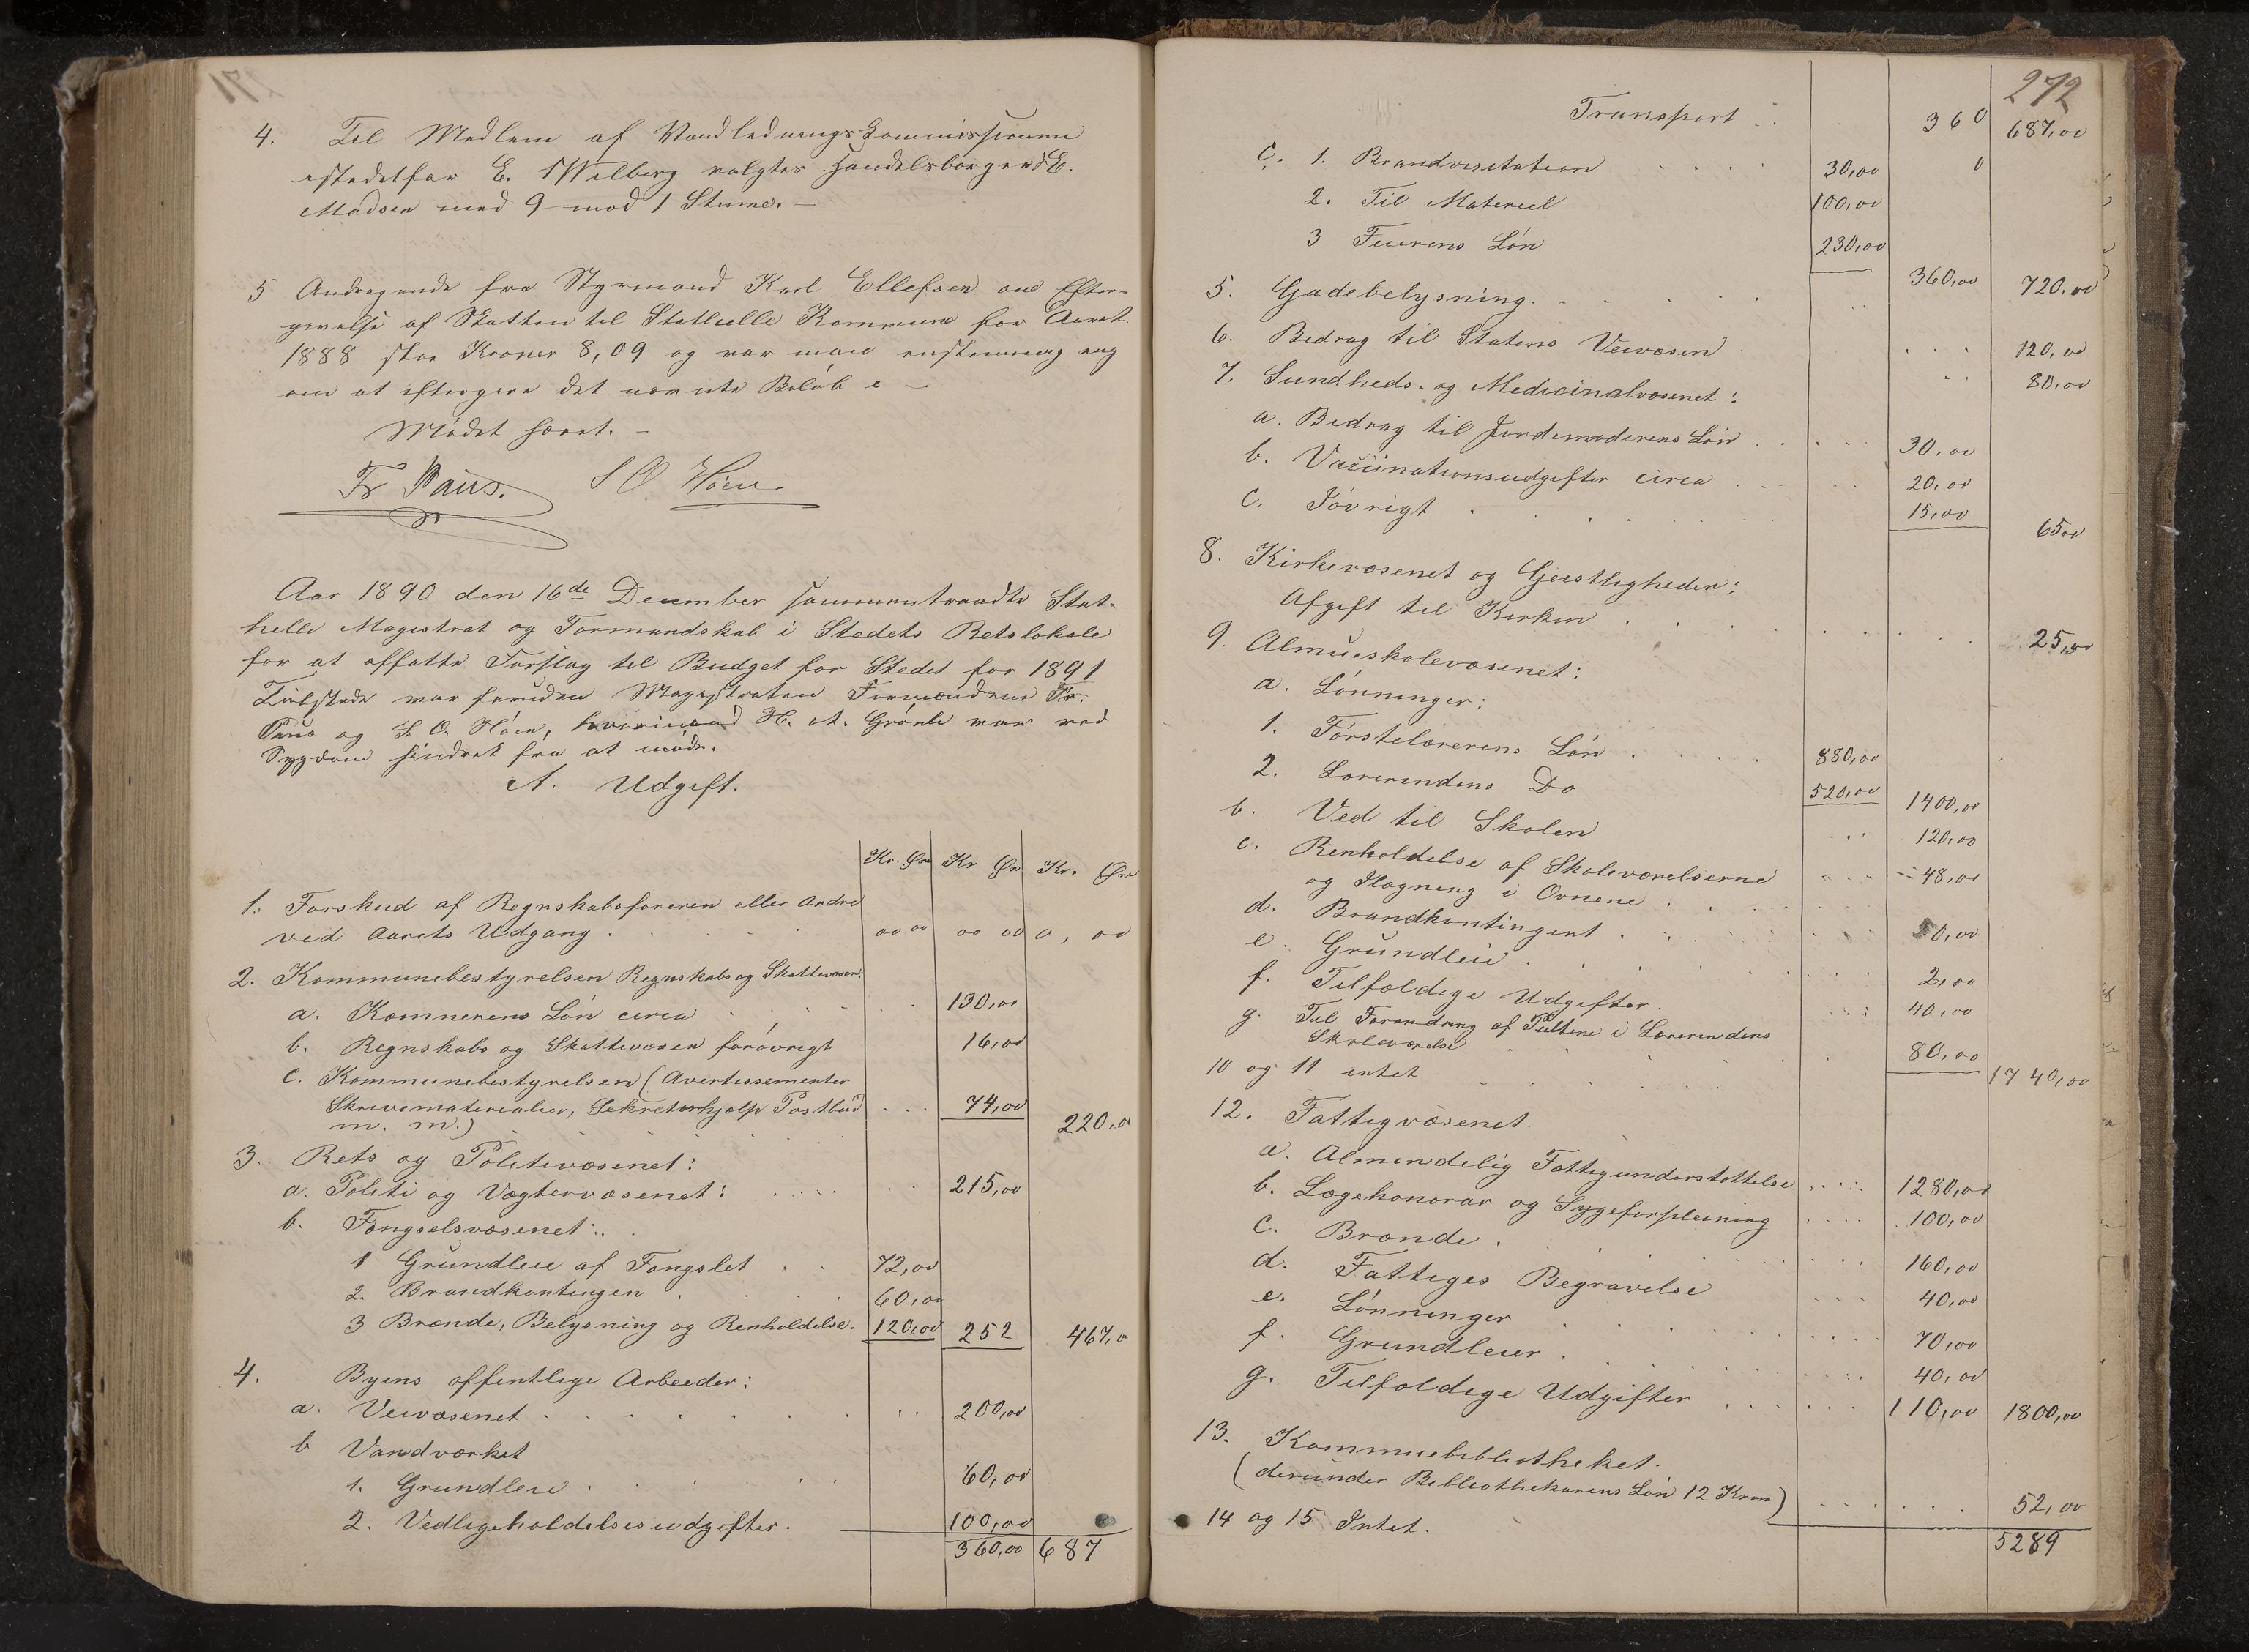 4. Til Medlem af Vandledningskommissionen
istedetfor E. Wilberg valgtes Handelsborger E.
Madsen med 9 mod 1 Stemme. —
5 Andragende fra Styrmand Karl Ellefsen om Efter-
givelse af Skatten til Stathelle Kommune for Aaret
1888 stor Kroner 8,09 og var man enstemmig enig
om at eftergive det nævnte Beløb
Mødet hævet. —
Fr Paus. S O. Høen.
Aar 1890 den 16de December sammentraadte Stat-
helle Magistrat og Formandskab i Stedets Retslokale
for at affatte Forslag til Budget for Stedet for 1891
Tilstede var foruden Magistraten Formændene Fr.
Paus og S. O. Høen, hvorimod H. A. Grønli var ved
Sygdom hindret fra at møde.
A. Udgift.
Kr. Øre Kr Ør Kr. Øre
1. Forskud af Regnskabsføreren eller Andre
ved Aarets Udgang . . . 00 00 00 00 0, 00
2. Kommunebestyrelsen Regnskabs og Skattevæsen:
a. Kæmnerens Løn circa . . . 130,00
b. Regnskabs og Skattevæsen forøvrigt 16,00
c. Kommunebestyrelsen (Avertissementer
Skrivematerialier, Sekretærhjælp Postbud . . . 74,00
m. m.) 220,0
3. Rets og Politivæsenet:
a. Politi og Vægtervæsenet: . . . 215,00
b. Fængselsvæsenet:
1 Grundleie af Fængslet . . 72,00
2. Brandkontingen . . . 60,00
3 Brænde, Belysning og Renholdelse. 120,00 252 467,0
4. Byens offentlige Arbeider:
a. Veivæsenet . . . 200,00
b Vandværket
1. Grundleie . . . 60,00
2. Vedligeholdelsesudgifter. 100,00
360,00 687
272
Transport . . 360 687,00
C. 1. Brandvisitation . . . 30,00 0
2. Til Materiel 100,00
3 Feierens Løn 230,00
360,00 720,00
5. Gadebelysning. . . .
6. Bidrag til Statens Veivæsen . . . 120,00
7. Sundheds- og Medicinalvæsenet: . . 80,00
a. Bidrag til Jordemoderens Løn . . . 30,00
b. Vaccinationsudgifter circa . . . 20,00
c. Iøvrigt . . . 15,00
6500
8. Kirkevæsenet og Geistligheden:
Afgift til Kirken . . . 25,00
9. Almueskolevæsenet:
a. Lønninger:
1. Førstelærerens Løn . . . 880,00
2. Lærerindens Do 520,00 1400,00
b. Ved til Skolen . . 120,00
c. Renholdelse af Skoleværelserne
og Ilægning i Ovnene . . . 48,00
d. Brandkontingent . . . 50,00
e. Grundleie . . . 2,00
f. Tilfældige Udgifter . . . 40,00
g. Til Forandring af Pultene i Lærerindens
Skoleværelse . . . 80,00
10 og 11 intet . . . 1740,00
12. Fattigvæsenet.
a. Almindelig Fattigunderstøttelse . . . 1280,00
b. Lægehonorar og Sygeforpleining . . . 100,00
c. Brænde . . . 160,00
d. Fattiges Begravelse . . . 40,00
e. Lønninger . . . 70,00
f. Grundleier . . . 40,00
g. Tilfældige Udgifter . . . 110,00 1800,00
13. Kommuebibliotheket.
(derunder Bibliothekarens Løn 12 Kroner) . . . 52,00
14 og 15 Intet.
5289